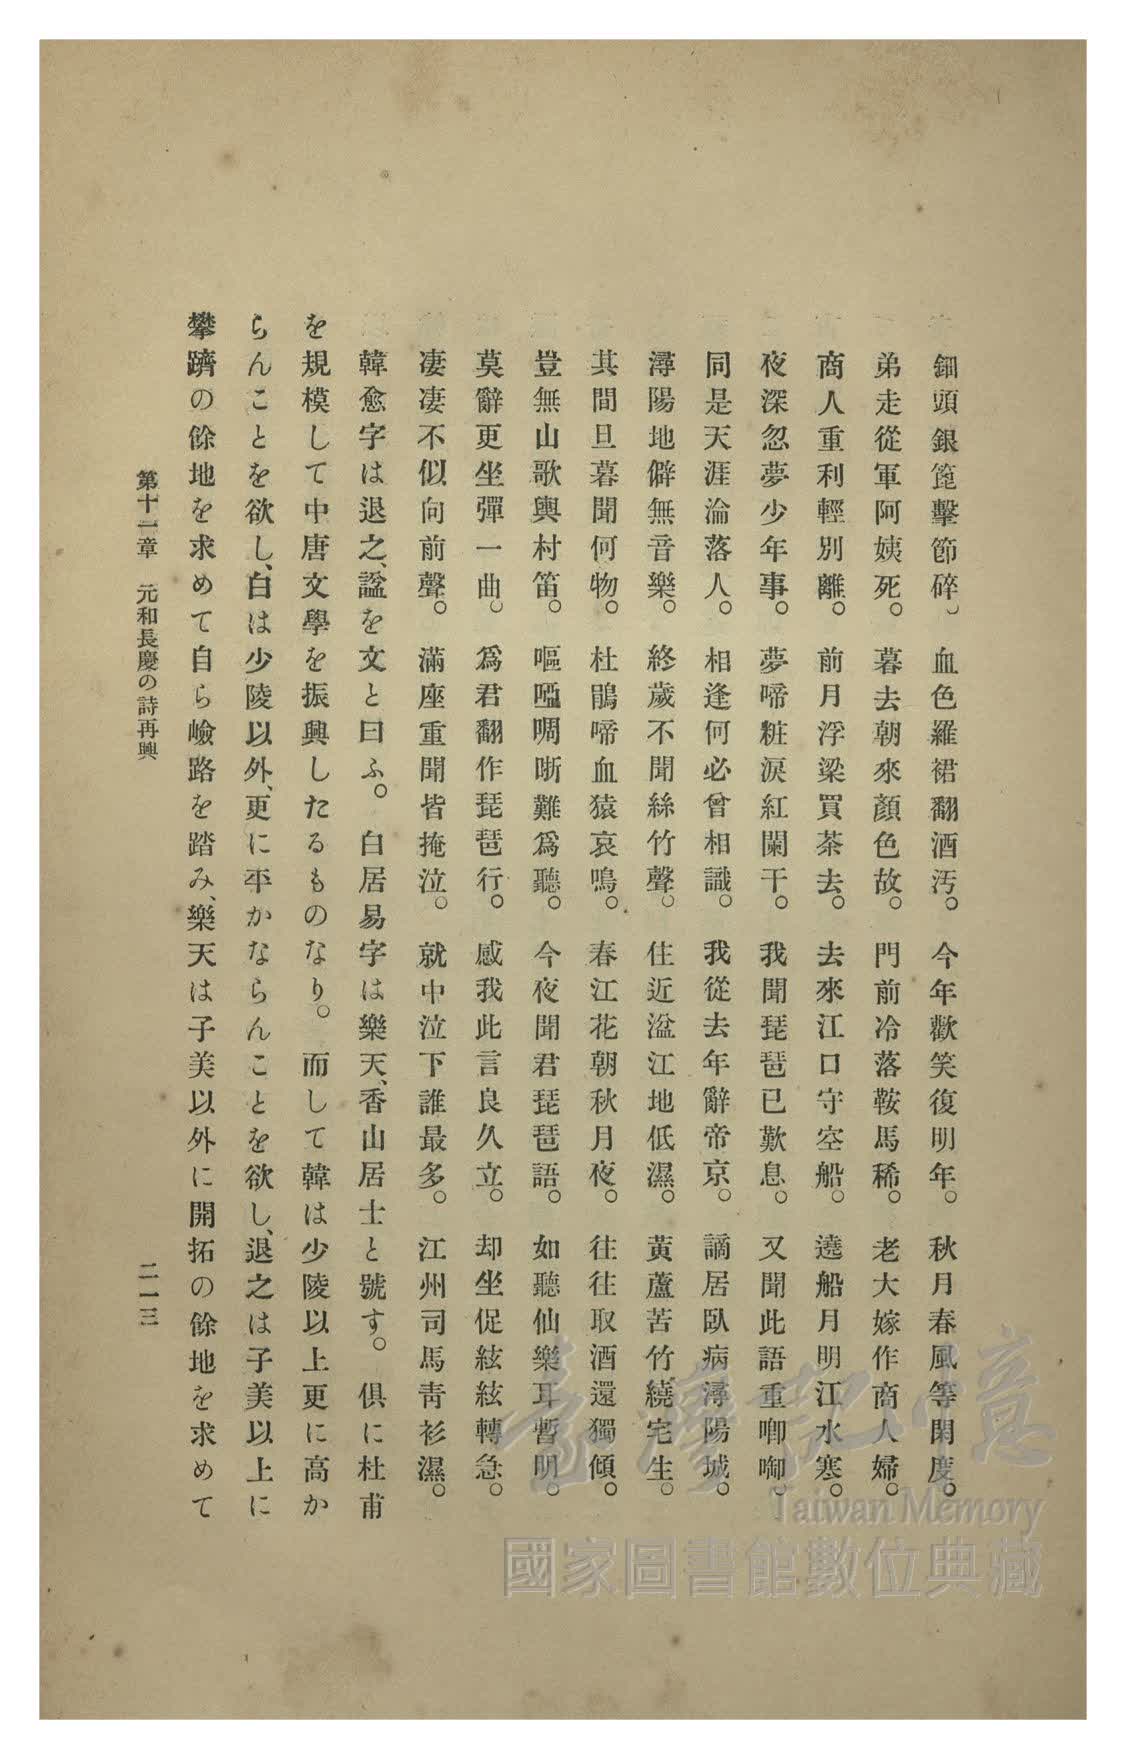 鈿頭銀箆擊節碎。血色羅裙翻酒汚。今年歡笑復明年。秋月春風等閑度。
弟走從軍阿姨死。暮去朝來顏色故。門前冷落鞍馬稀。老大嫁作商人婦。
商人重利輕別離。前月浮梁買茶去。去來江口守空船。遶船月明江水寒。
夜深忽夢少年事。夢啼粧淚紅闌干。我聞琵琶已歎息。又聞此語重喞喞。
同是天涯淪落人。相逢何必曾相識。我從去年辭帝京。謫居臥病潯陽城。
潯陽地僻無音樂。終歲不聞絲竹聲。住近湓江地低濕。黃蘆苦竹繞宅生。
其間旦暮聞何物。杜鵑啼血猿哀鳴。春江花朝秋月夜。往往取酒還獨傾。
豈無山歌與村笛。嘔啞啁哳難爲聽。今夜聞君琵琶語。如聽仙樂耳暫明。
莫辭更坐彈一曲。爲君翻作琵琶行。感我此言良久立。却坐促絃絃轉急。
凄凄不似向前聲。滿座重聞皆掩泣。就中泣下誰最多。江州司馬靑衫濕。
韓愈字は退之、謚を文と曰ふ。白居易字は樂天、香山居士と號す。俱に杜甫
を規模して中唐文學を振興したるものなり。而して韓は少陵以上更に高か
らんことを欲し、白は少陵以外、更に平かならんことを欲し、退之は子美以上に
攀躋の餘地を求めて自ら嶮路を踏み、樂天は子美以外に開拓の餘地を求めて
第十一章 元和長慶の詩再興 二一三
臺灣記憶
Taiwan Memory
國家圖書館數位典藏